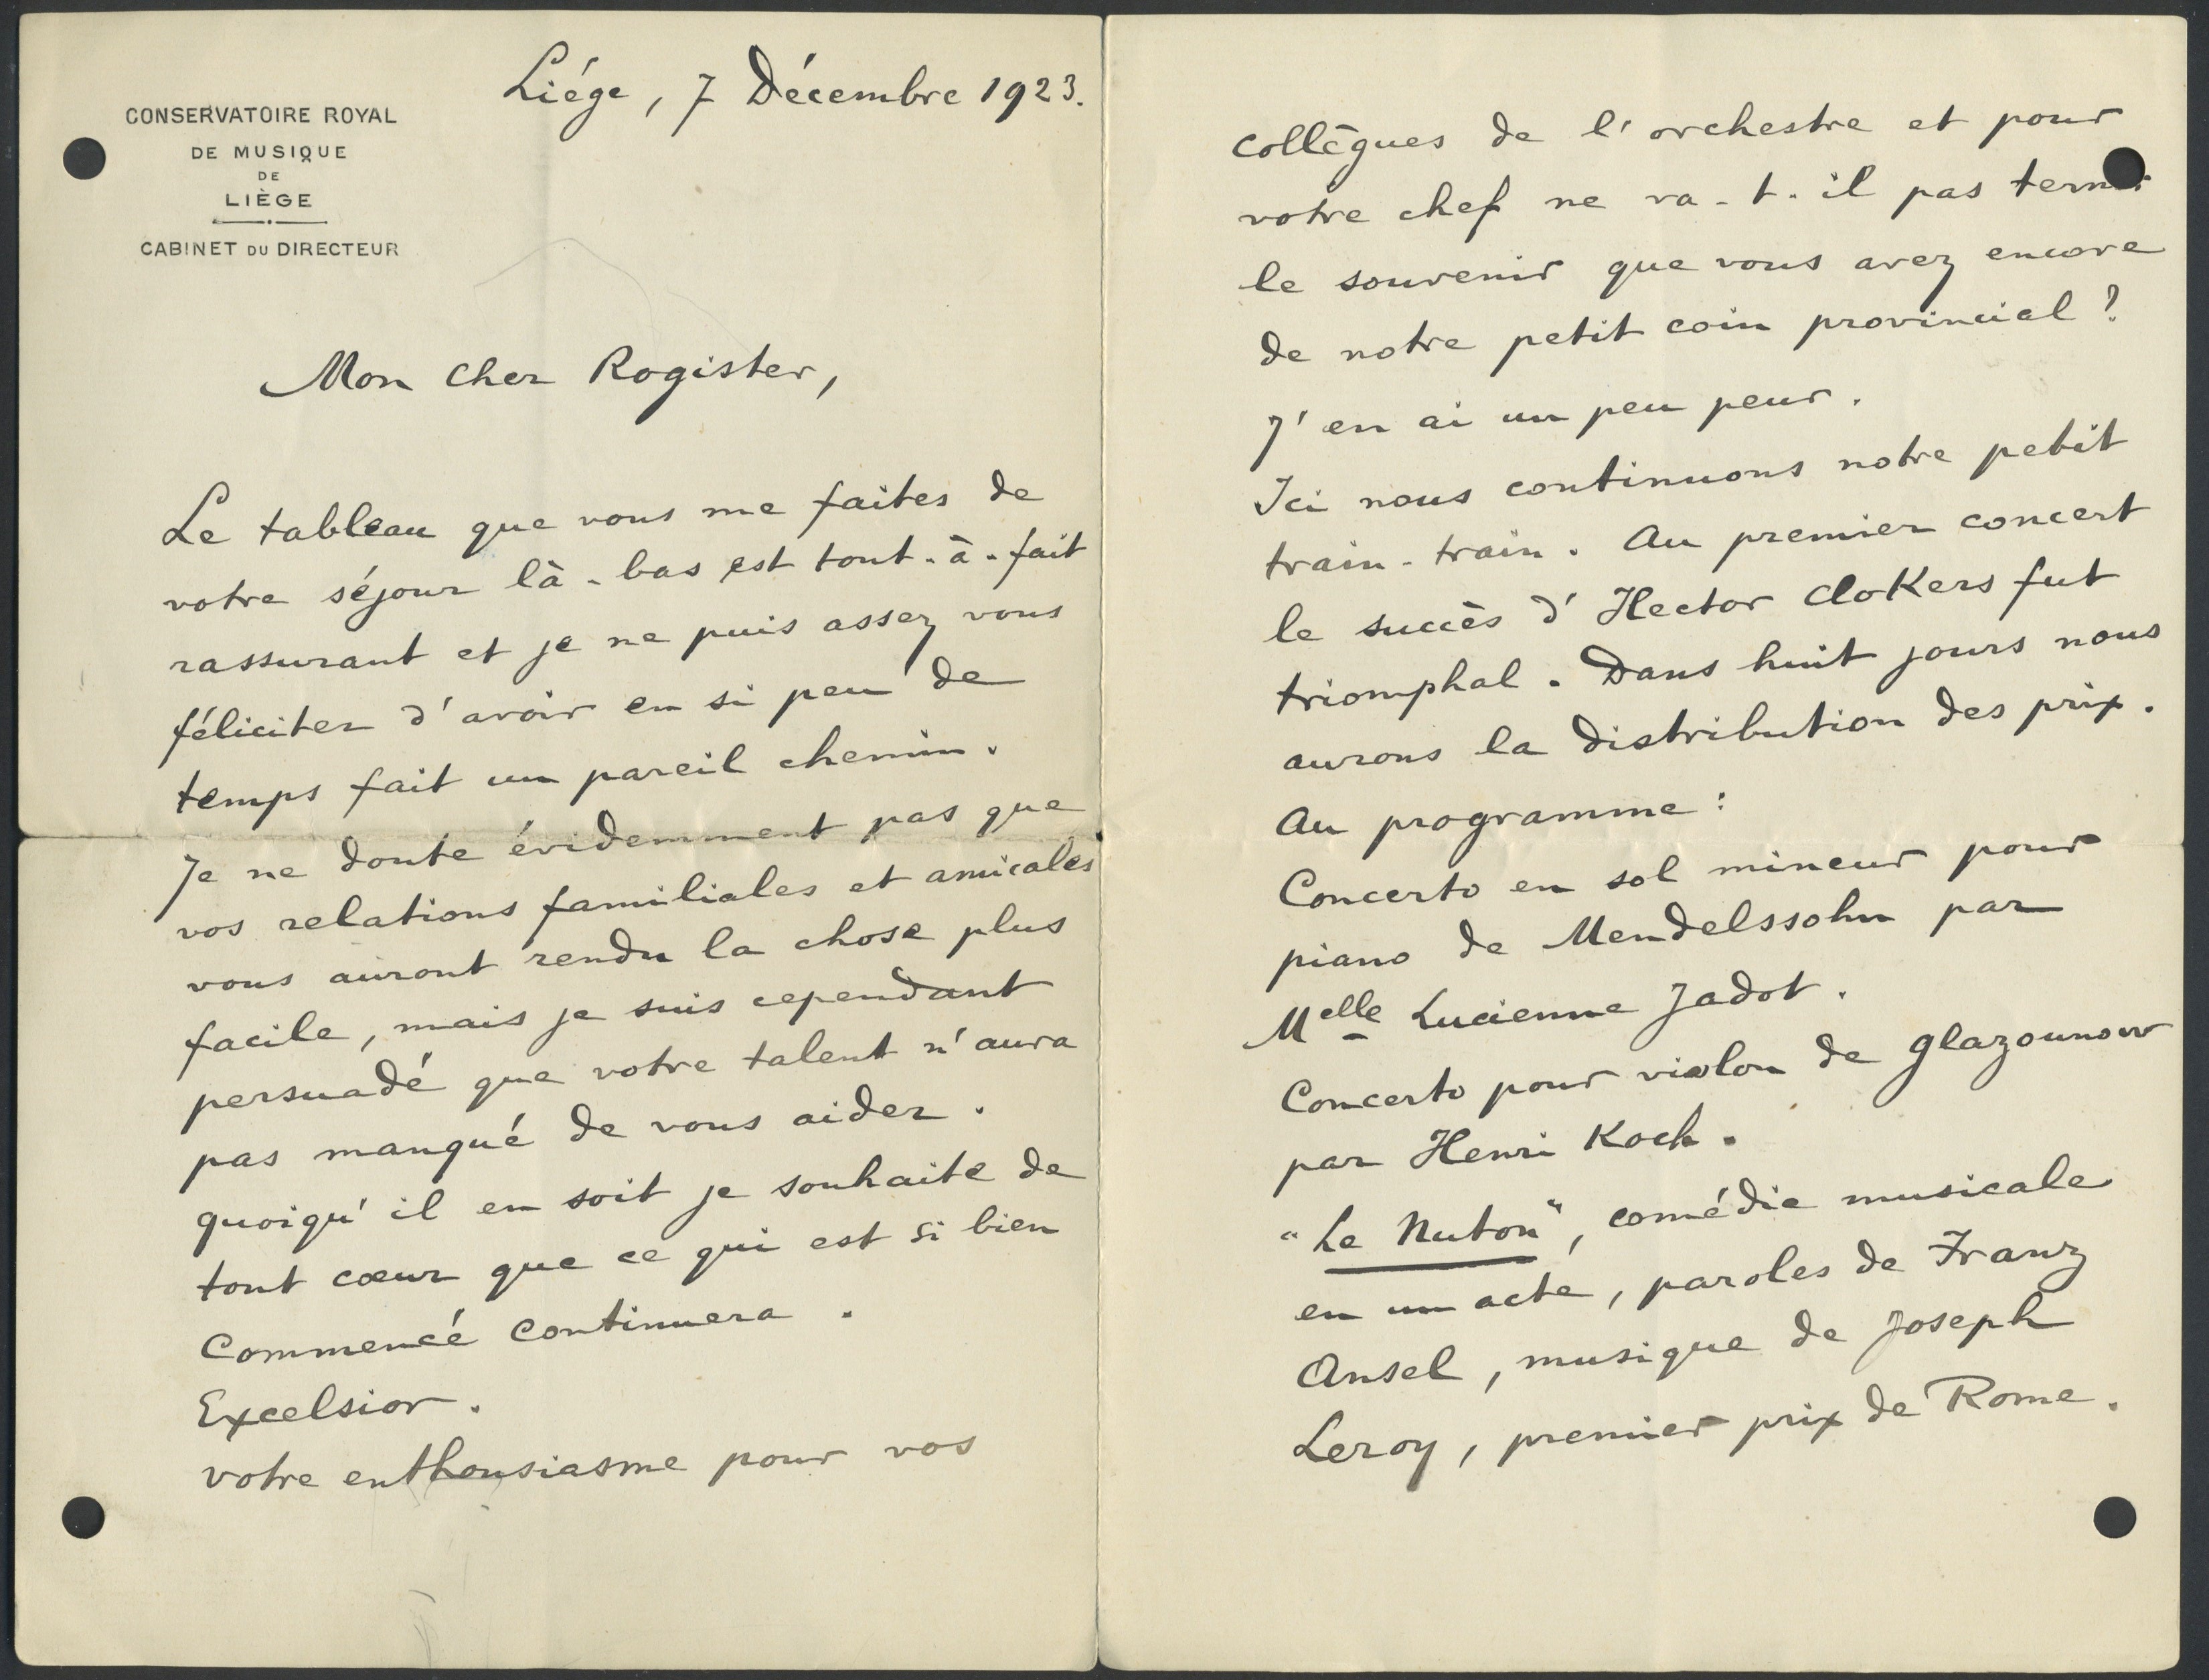 CONSERVATOIRE ROYAL
DE MUSIQUE
DE
LIÈGE
CABINET DU DIRECTEUR
Liége, 7 Décembre 1923.
Mon cher Rogister,
Le tableau que vous me faites de
votre séjour là-bas est tout-à-fait
rassurant et je ne puis assez vous
féliciter d'avoir en si peu de
temps fait un pareil chemin.
Je ne doute évidemment pas que
vos relations familiales et amicales
vous auront rendu la chose plus
facile, mais je suis cependant
persuadé que votre talent n'aura
pas manqué de vous aider.
quoiqu'il en soit je souhaite de
tout cœur que ce qui est si bien
commencé continuera.
Excelsior.
votre enthousiasme pour vos
collègues de l'orchestre et pour
votre chef ne va-t-il pas ternir
le souvenir que vous avez encore
de notre petit coin provincial ?
J'en ai un peu peur.
Ici nous continuons notre petit
train-train. Au premier concert
le succès d'Hector Clokers fut
triomphal. Dans huit jours nous
aurons la distribution des prix.
Au programme :
Concerto en sol mineur pour
piano de Mendelssohn par
Melle Lucienne Jadot.
Concerto pour violon de Glazounow
par Henri Koch.
"Le Nuton", comédie musicale
en un acte, paroles de Franz
Ansel, musique de Joseph
Leroy, premier prix de Rome.